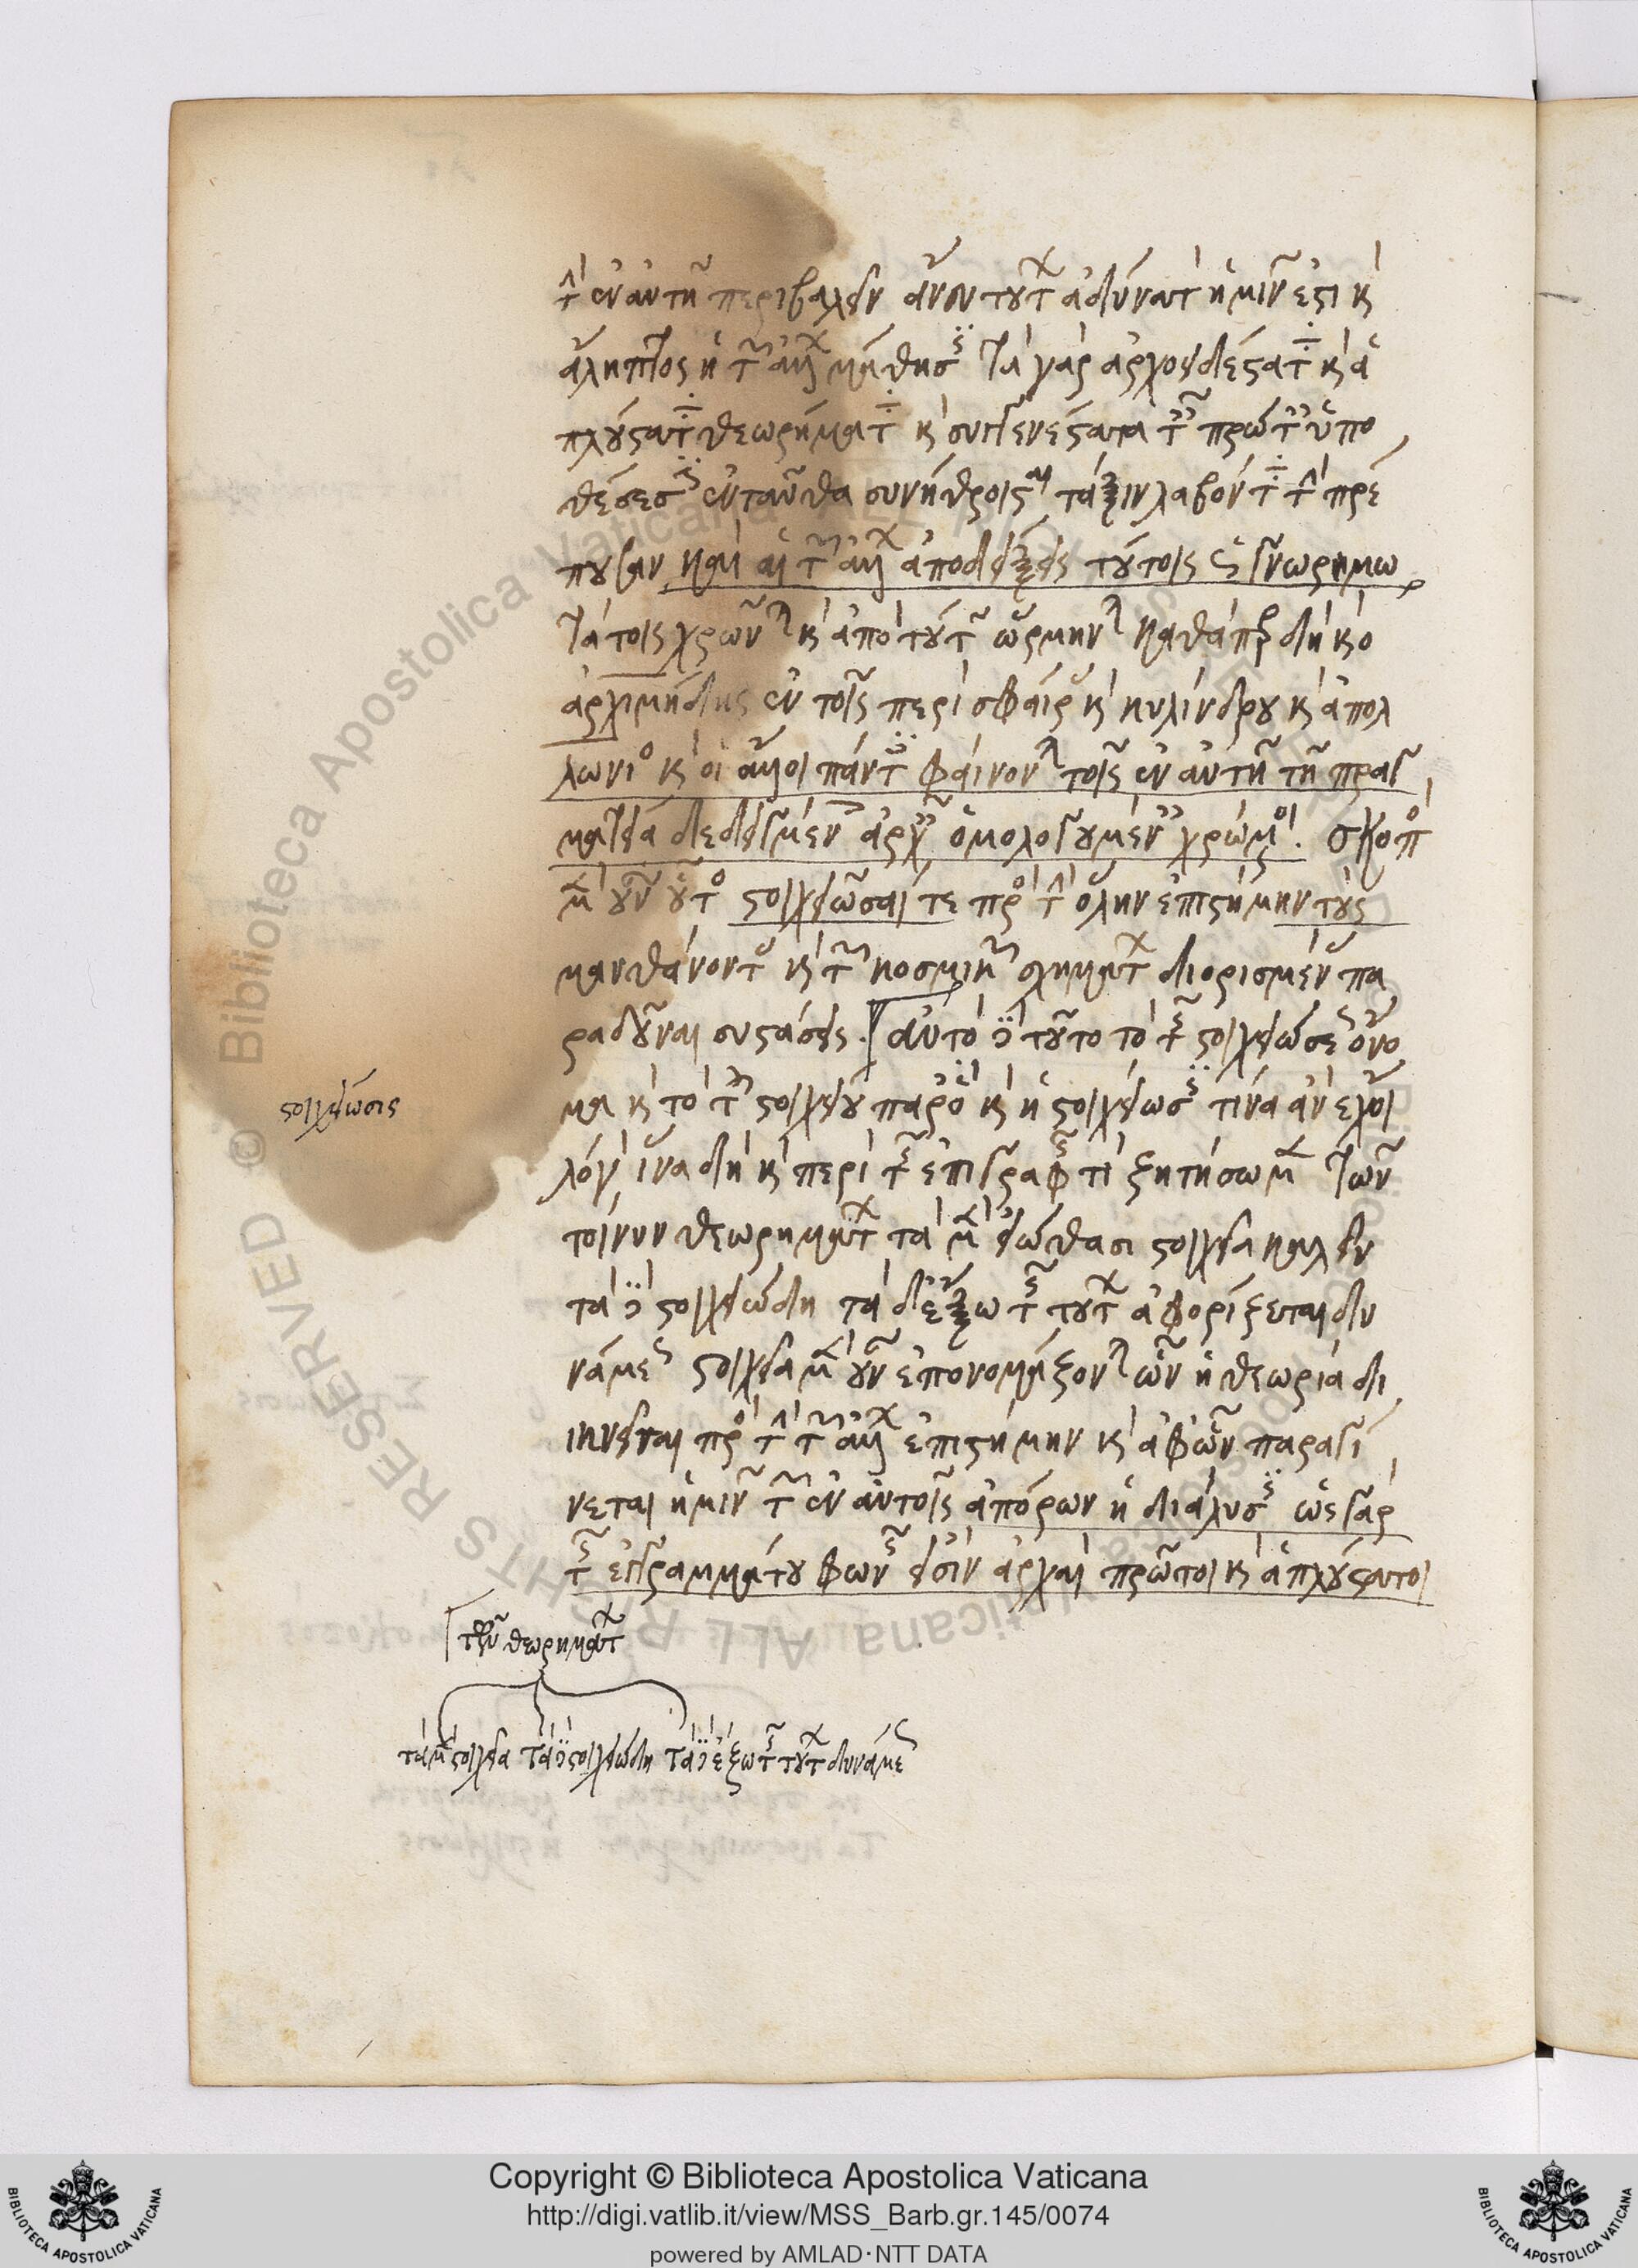 τὴν ἐν αὐτῇ περιβαλεῖν ἄνευ τούτων ἀδύνατος ἡμῖν ἐστὶ καὶ
ἄληπτος ἡ τῶν ἄλλων μάθησις τὰ γὰρ ἀρχοειδέστατα καὶ ἁ
πλούστατα θεωρήματα καὶ συγγενέστατα ταῖς πρώταις ὑπο
θέσεσιν ἐνταῦθα συνήθροισται τάξιν λαβόντα τὴν πρέ
πουσαν καὶ αἱ τῶν ἄλλων ἀποδείξεις τούτοις ὡς γνωριμω
τάτοις χρῶνται καὶ ἀπὸ τούτων ὥρμηνται καθάπερ δὴ καὶ ὁ
ἀρχιμήδης ἐν τοῖς περὶ σφαίρας καὶ κυλίνδρου καὶ ἀπολ
λώνιος καὶ οἱ ἄλλοι πάντες φαίνονται τοῖς ἐν αὐτῇ τῇ πραγ
ματείᾳ δεδειγμένοις ἀρχαῖς ὁμολογουμέναις χρώμενοι. σκοπὸς
μὲν οὖν οὗτος στοιχειῶσαί τε πρὸς τὴν ὅλην ἐπιστήμην τοὺς
μανθάνοντας καὶ τῶν κοσμικῶν σχημάτων διωρισμένας πα
ραδοῦναι συστάσεις. αὐτὸ δὲ τοῦτο τὸ τῆς στοιχειώσεως ὄνο
μα καὶ τὸ τοῦ στοιχείου παρ' ὃ καὶ ἡ στοιχείωσις τίνα ἂν ἔχοι
λόγον ἵνα δὴ καὶ περὶ τῆς ἐπιγραφῆς τι ζητήσωμεν τῶν
τοίνυν θεωρημάτων τὰ μὲν εἰώθασι στοιχεῖα καλεῖν
τὰ δὲ στοιχειώδη τὰ δὲ ἔξω τῆς τούτων ἀφορίζεται δυ
νάμεως στοιχεῖα μὲν οὖν ἐπονομάζονται ὧν ἡ θεωρία δι
ικνεῖται πρὸς τὴν τῶν ἄλλων ἐπιστήμην καὶ ἀφ' ὧν παραγί
νεται ἡμῖν τῶν ἐν αὐτοῖς ἀπόρων ἡ διάλυσις ὡς γὰρ
τῆς ἐγγραμμάτου φωνῆς εἰσὶν ἀρχαὶ πρῶται καὶ ἁπλούσταται
στοιχείωσις
τῶν θεωρημάτων
τὰ μὲν στοιχεῖα τὰ δὲ στοιχειώδη τὰ δὲ ἔξω τῆς τούτων δυνάμεως
Copyright © Biblioteca Apostolica Vaticana
http://digi.vatlib.it/view/MSS_Barb.gr.145/0074
powered by AMLAD·NTT DATA